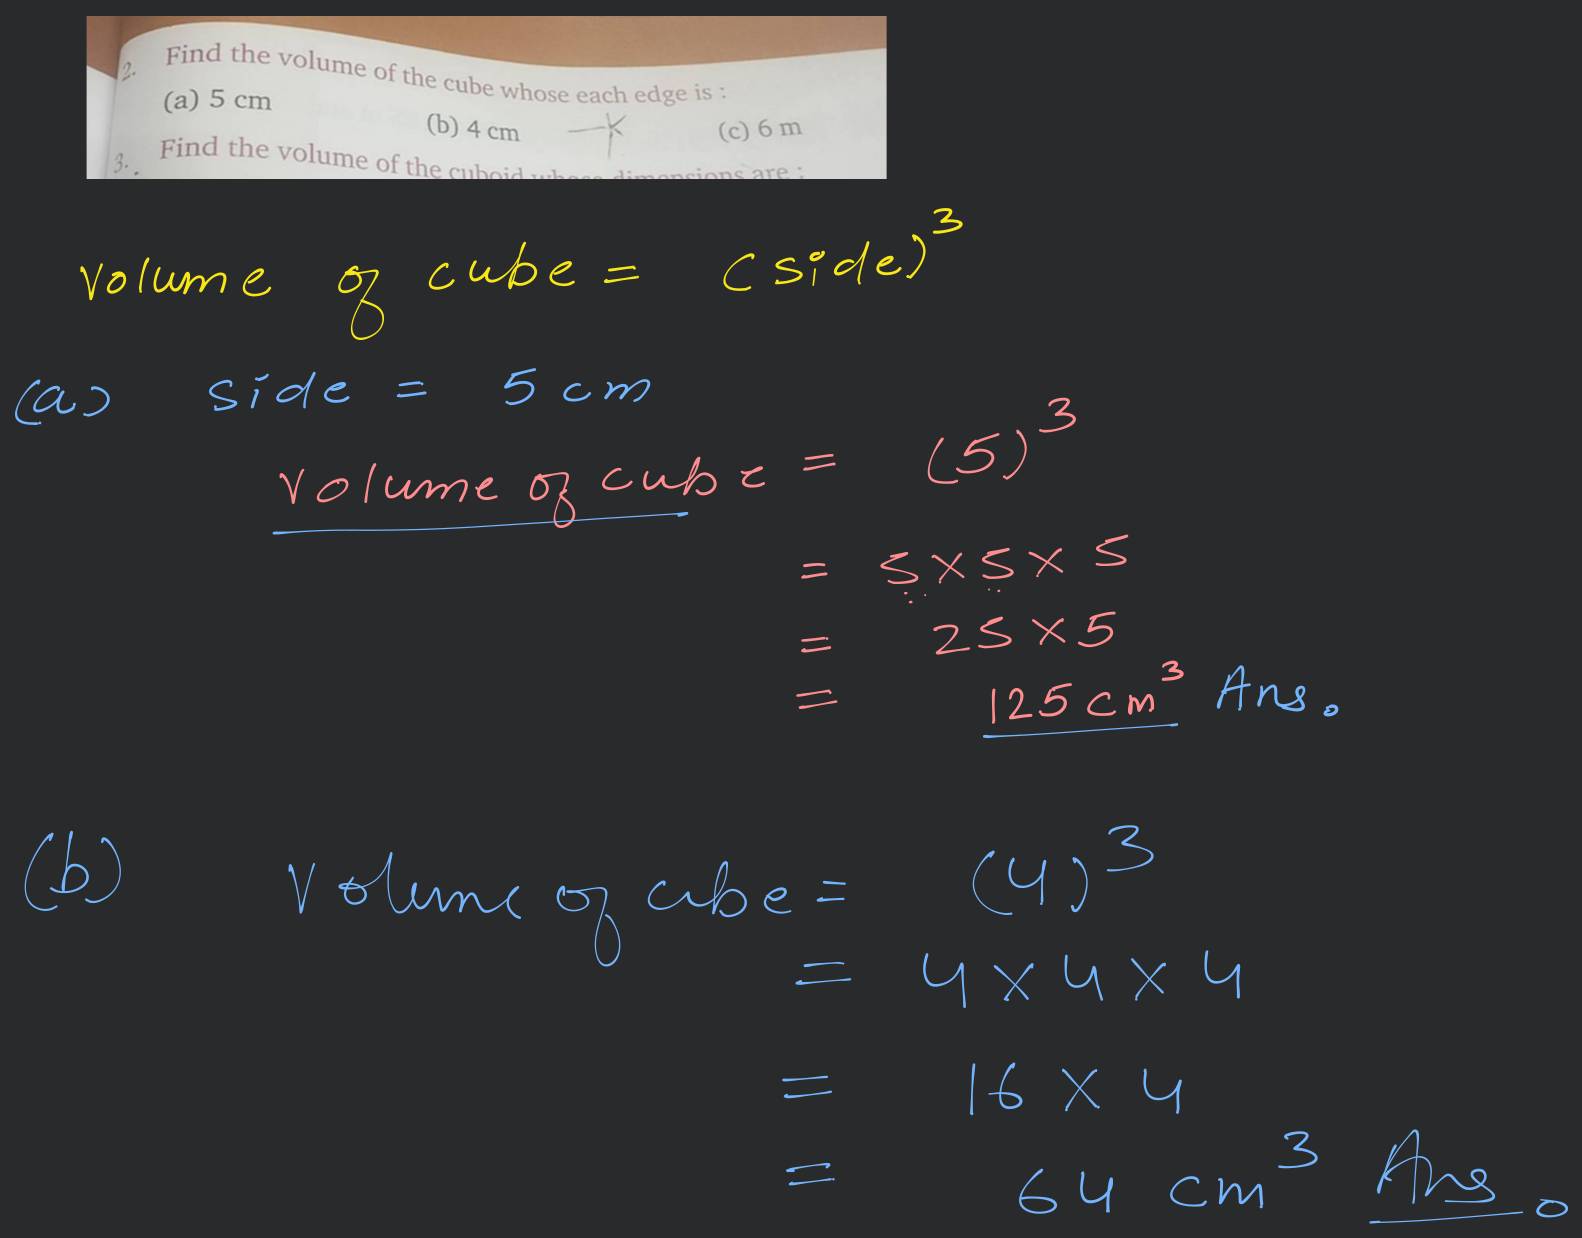 2. Find the volume of the cube whose each edge is :
(a) 5 cm (b) 4 cm (c) 6 m
3. Find the volume of the cuboid whose dimensions are :
Volume of cube = (side)³
(a) side = 5 cm
Volume of cube = (5)³
= 5 × 5 × 5
= 25 × 5
= 125 cm³ Ans.
(b) Volume of cube = (4)³
= 4 × 4 × 4
= 16 × 4
= 64 cm³ Ans.